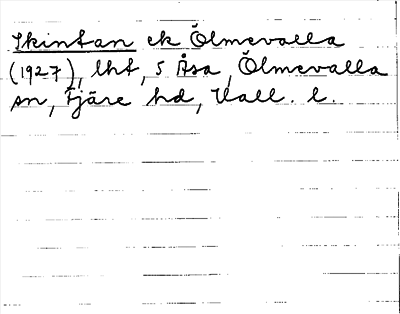 Skintan ek Ölmevalla
(1927), lht, S Åsa, Ölmevalla
sn, Fjäre hd, Hall. l.